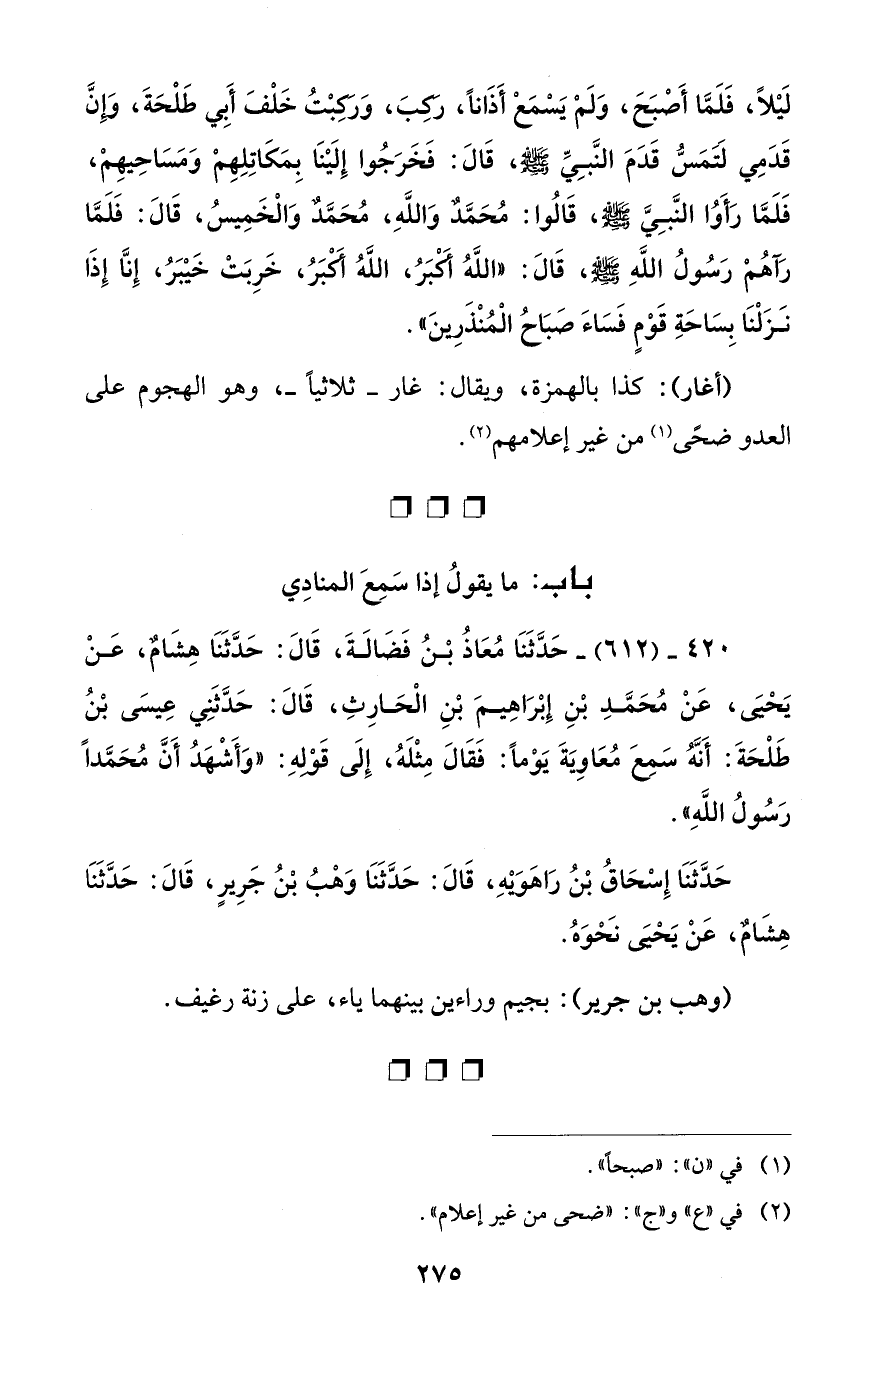 لَيْلاً، فَلَمَّا أَصْبَحَ، وَلَمْ يَسْمَعْ أَذَاناً، رَكِبَ، وَرَكِبْتُ خَلْفَ أَبِي طَلْحَةَ، وَإِنَّ
قَدَمِي لَتَمَسُّ قَدَمَ النَّبِيِّ ﷺ، قَالَ: فَخَرَجُوا إِلَيْنَا بِمَكَاتِلِهِمْ وَمَسَاحِيهِمْ،
فَلَمَّا رَأَوُا النَّبِيَّ ﷺ، قَالُوا: مُحَمَّدٌ وَاللَّهِ، مُحَمَّدٌ وَالْخَمِيسُ، قَالَ: فَلَمَّا
رَآهُمْ رَسُولُ اللَّهِ ﷺ، قَالَ: «اللَّهُ أَكْبَرُ، اللَّهُ أَكْبَرُ، خَرِبَتْ خَيْبَرُ، إِنَّا إِذَا
نَزَلْنَا بِسَاحَةِ قَوْمٍ فَسَاءَ صَبَاحُ الْمُنْذَرِينَ».
(أغار): كذا بالهمزة، ويقال: غار ـ ثلاثياً ـ، وهو الهجوم على
العدو ضحًى(١) من غير إعلامهم(٢).
باب: ما يقولُ إذا سَمِعَ المنادِي
٤٢٠ ـ (٦١٢) ـ حَدَّثَنَا مُعَاذُ بْنُ فَضَالَةَ، قَالَ: حَدَّثَنَا هِشَامٌ، عَنْ
يَحْيَى، عَنْ مُحَمَّدِ بْنِ إِبْرَاهِيمَ بْنِ الْحَارِثِ، قَالَ: حَدَّثَنِي عِيسَى بْنُ
طَلْحَةَ: أَنَّهُ سَمِعَ مُعَاوِيَةَ يَوْماً: فَقَالَ مِثْلَهُ، إِلَى قَوْلِهِ: «وَأَشْهَدُ أَنَّ مُحَمَّداً
رَسُولُ اللَّهِ».
حَدَّثَنَا إِسْحَاقُ بْنُ رَاهَوَيْهِ، قَالَ: حَدَّثَنَا وَهْبُ بْنُ جَرِيرٍ، قَالَ: حَدَّثَنَا
هِشَامٌ، عَنْ يَحْيَى نَحْوَهُ.
(وهب بن جرير): بجيم وراءين بينهما ياء، على زنة رغيف.
(١) في «ن»: «صبحاً».
(٢) في «ع» و«ج»: «ضحى من غير إعلام».
٢٧٥